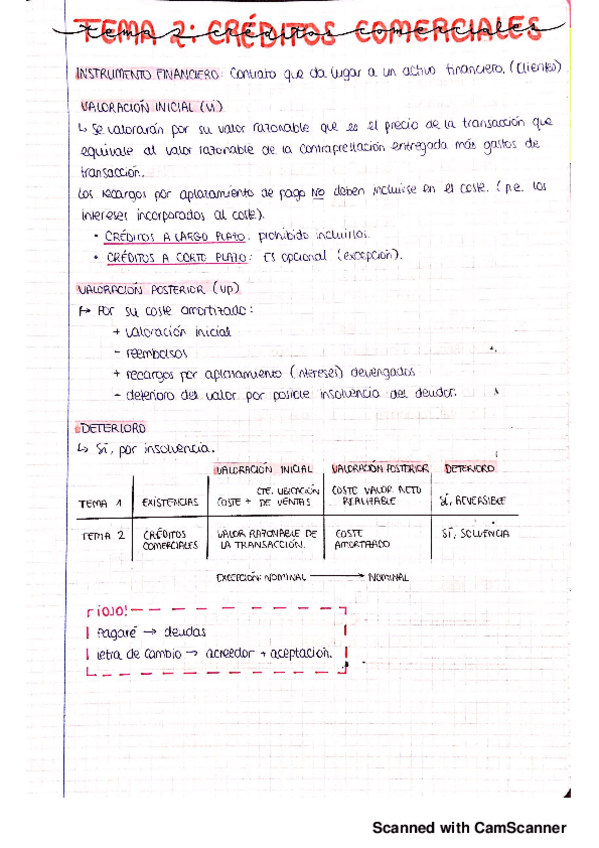 TEMA 2: CRÉDITOS COMERCIALES
tema 2: créditos comerciales
INSTRUMENTO FINANCIERO: Contrato que da lugar a un activo financiero. (Clientes)
VALORACIÓN INICIAL (VI)
↳ Se valorarán por su valor razonable que es el precio de la transacción que
equivale al valor razonable de la contraprestación entregada más gastos de
transacción.
Los recargos por aplazamiento de pago NO deben incluirse en el coste. (p.e. los
intereses incorporados al coste).
• CRÉDITOS A LARGO PLAZO: prohibido incluirlos.
• CRÉDITOS A CORTO PLAZO: Es opcional (excepción).
VALORACIÓN POSTERIOR (VP)
↳ Por su coste amortizado:
+ valoración inicial
- reembolsos
+ recargos por aplazamiento (intereses) devengados
- deterioro del valor por posible insolvencia del deudor.
DETERIORO
↳ Sí, por insolvencia.
VALORACIÓN INICIAL VALORACIÓN POSTERIOR DETERIORO
TEMA 1 EXISTENCIAS COSTE + CTE. UBICACIÓN DE VENTAS COSTE VALOR NETO REALIZABLE SÍ, REVERSIBLE
TEMA 2 CRÉDITOS COMERCIALES VALOR RAZONABLE DE LA TRANSACCIÓN. COSTE AMORTIZADO SÍ, SOLVENCIA
EXCEPCIÓN: NOMINAL → NOMINAL
¡OJO!
Pagaré → deudas
letra de cambio → acreedor + aceptación.
Scanned with CamScanner